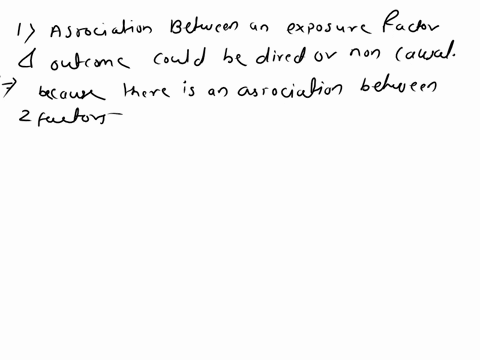 1) Association Between an exposure factor
& outcome could be dired or non causal.
=> because there is an association between
2 factors